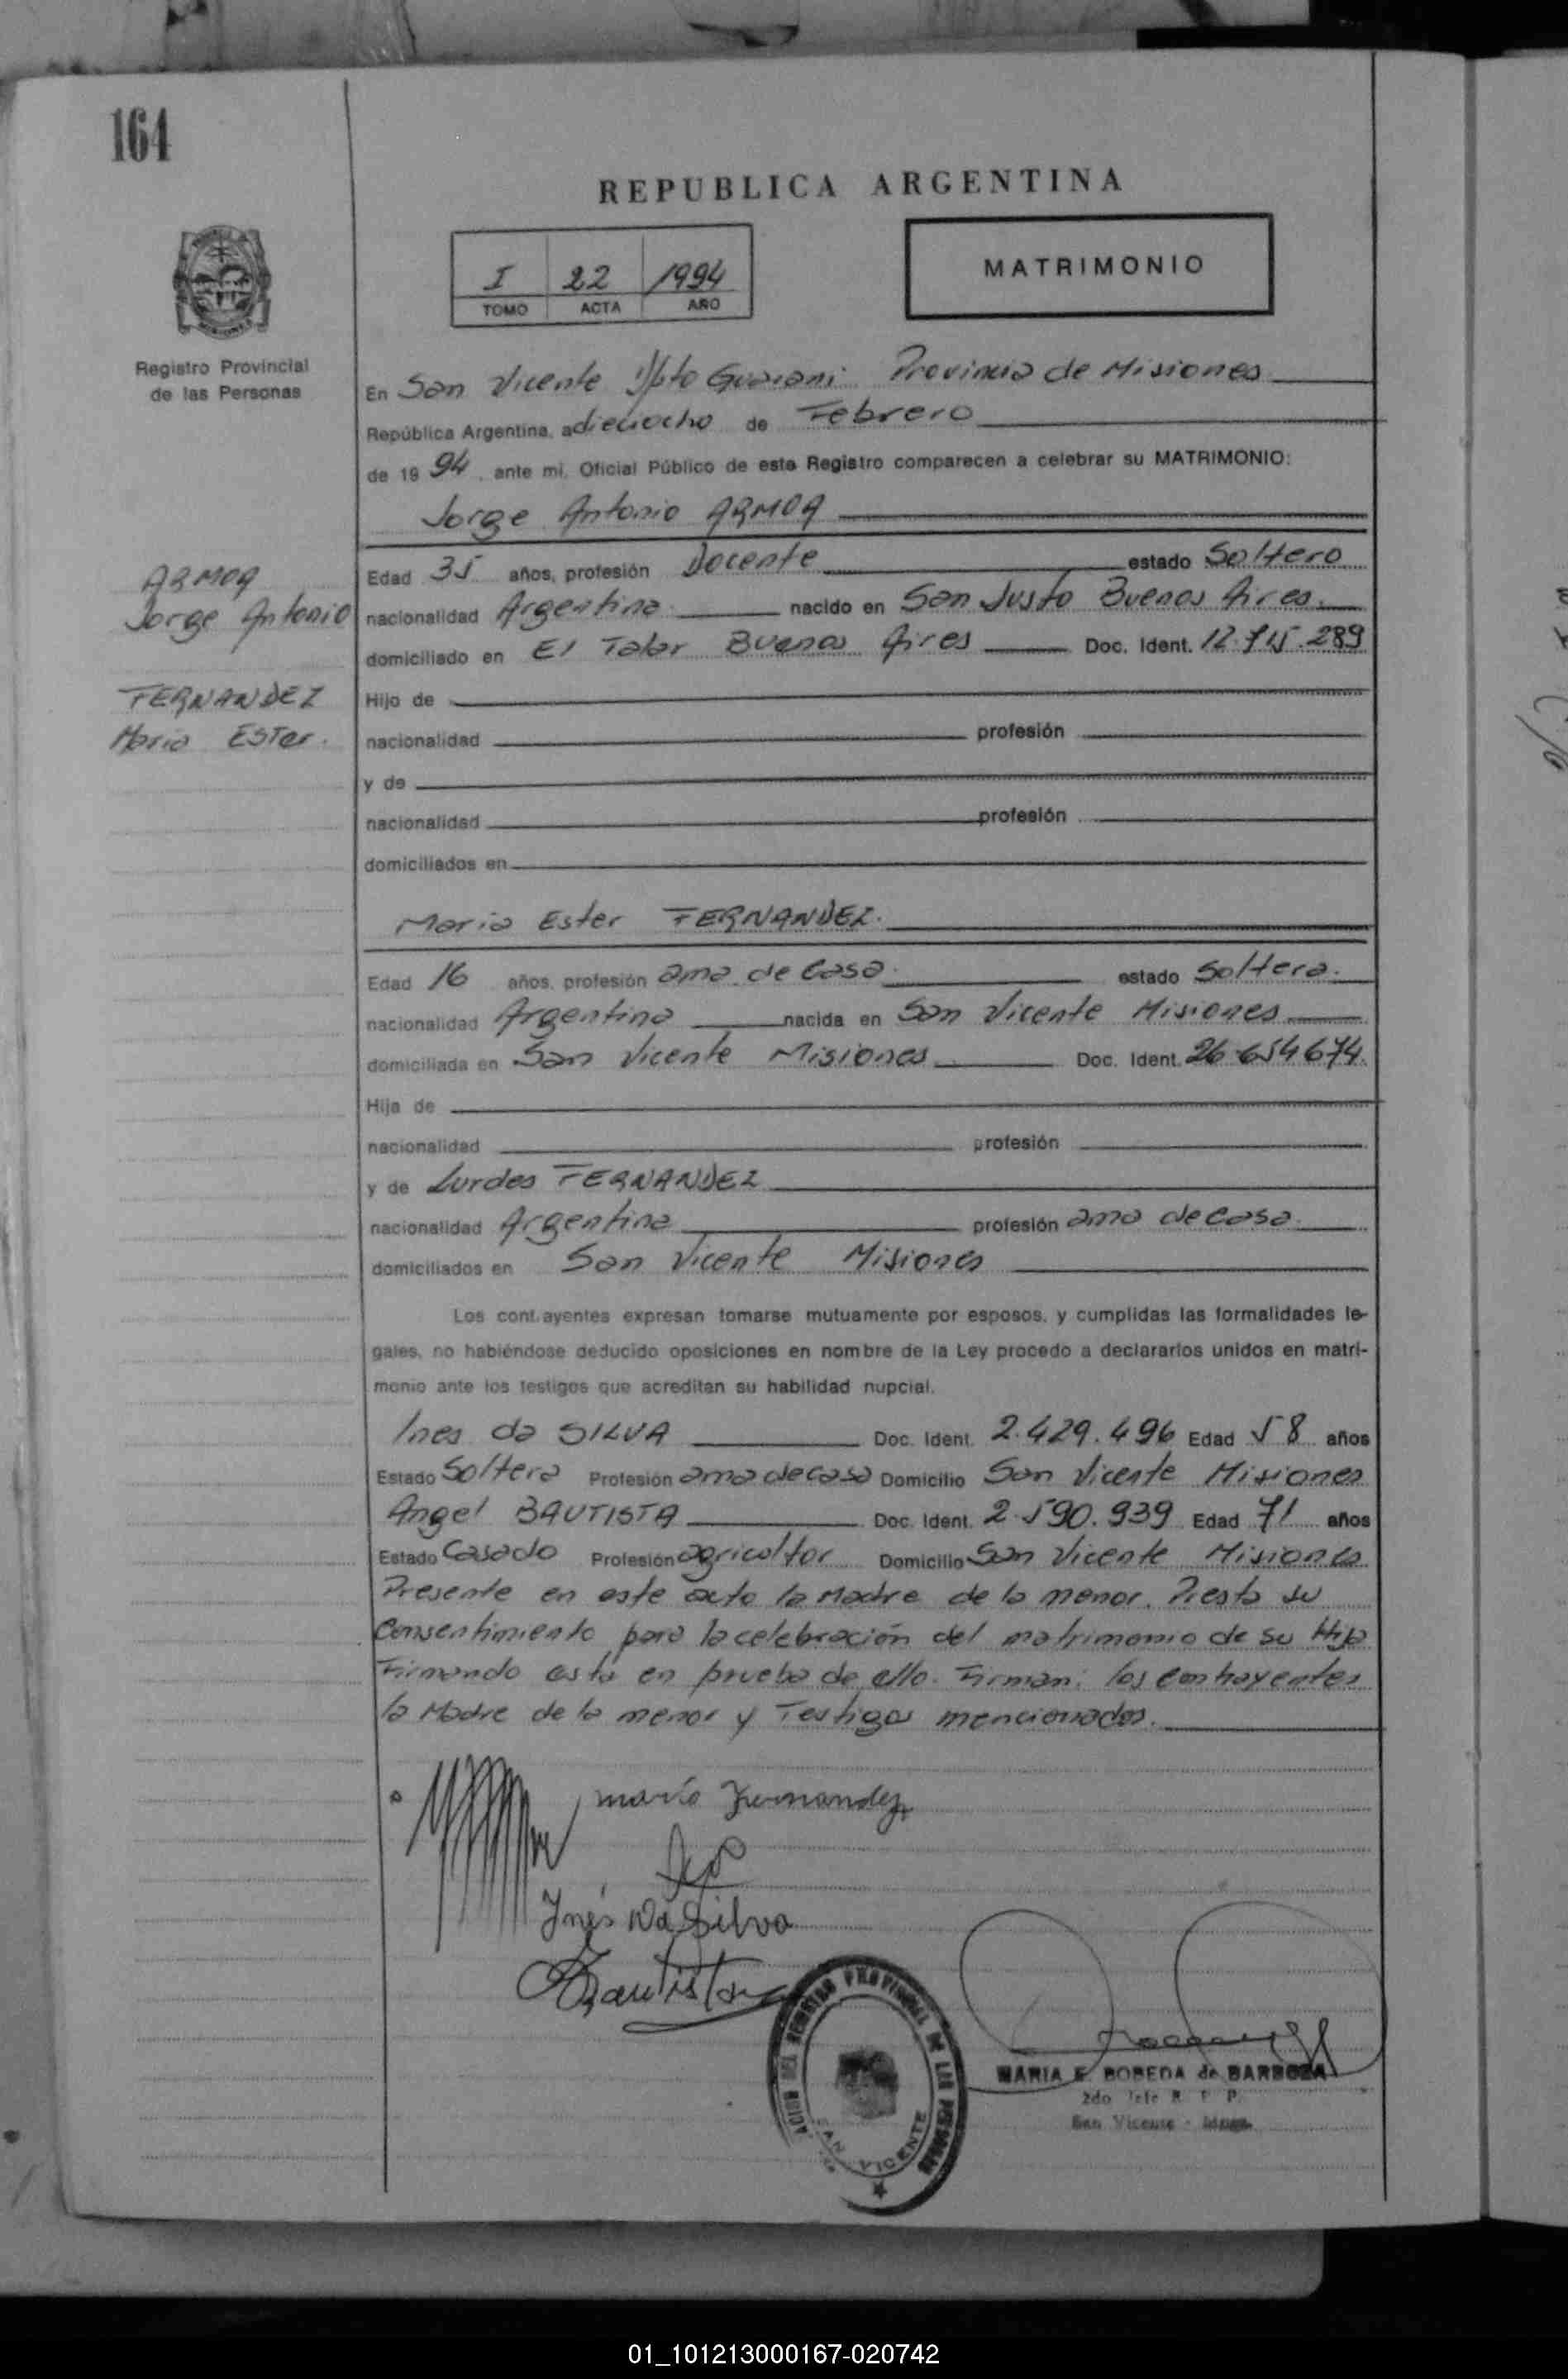 164
REPUBLICA ARGENTINA
I 22 1994
TOMO ACTA AÑO
MATRIMONIO
Registro Provincial
de las Personas
En San Vicente Dpto Guarani Provincia de Misiones
República Argentina, a dieciocho de Febrero
de 19 94, ante mi, Oficial Público de este Registro comparecen a celebrar su MATRIMONIO:
Jorge Antonio ARMOA
ARMOA
Jorge Antonio
FERNANDEZ
Maria Ester.
Edad 35 años, profesión Docente estado Soltero
nacionalidad Argentina nacido en San Justo Buenos Aires
domiciliado en El Talar Buenos Aires Doc. Ident. 12.715.289
Hijo de
nacionalidad profesión
y de
nacionalidad profesión
domiciliados en
Maria Ester FERNANDEZ.
Edad 16 años, profesión ama de casa. estado Soltera.
nacionalidad Argentina nacida en San Vicente Misiones
domiciliada en San Vicente Misiones Doc. Ident. 26.654674.
Hija de
nacionalidad profesión
y de Lurdes FERNANDEZ
nacionalidad Argentina profesión ama de casa.
domiciliados en San Vicente Misiones
Los cont.ayentes expresan tomarse mutuamente por esposos, y cumplidas las formalidades le-
gales, no habiéndose deducido oposiciones en nombre de la Ley procedo a declararlos unidos en matri-
monio ante los testigos que acreditan su habilidad nupcial.
Ines da SILVA Doc. Ident. 2.429.496 Edad 58 años
Estado Soltera Profesión ama de casa Domicilio San Vicente Misiones
Angel BAUTISTA Doc. Ident. 2.590.939 Edad 71 años
Estado Casado Profesión agricultor Domicilio San Vicente Misiones
Presente en este acto la Madre de la menor. Presta su
Consentimiento para la celebración del matrimonio de su Hija
Firmando esta en prueba de ello. Firman: los contrayentes
la Madre de la menor y Testigos mencionados.
maria Fernandez
Inés Da Silva
ABautista
REGISTRO PROVINCIAL DE LAS PERSONAS
SAN VICENTE
MARIA E. BOBEDA de BARBOZA
2do Jefe R. P. P.
San Vicente - Mnes.
01_101213000167-020742